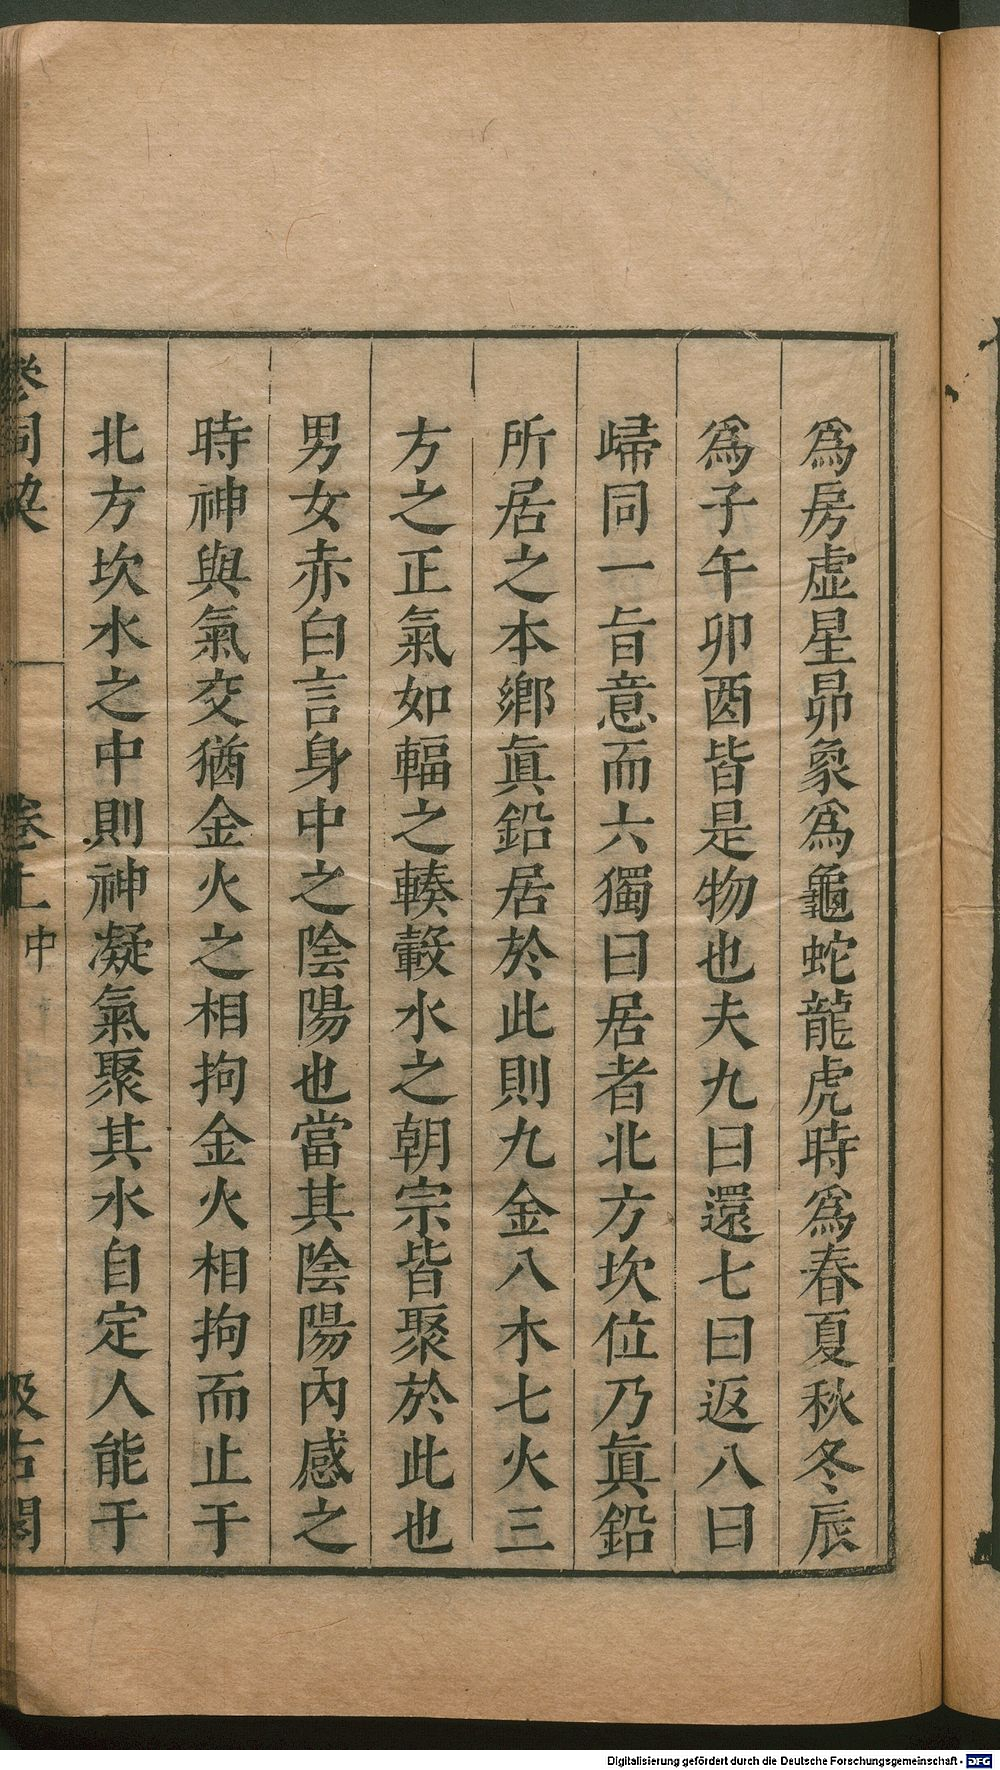 爲房虛星昴象爲龜蛇龍虎時爲春夏秋冬辰
爲子午卯酉皆是物也夫九曰還七曰返八曰
歸同一旨意而六獨曰居者北方坎位乃眞鉛
所居之本鄉眞鉛居於此則九金八木七火三
方之正氣如輻之輳轂水之朝宗皆聚於此也
男女赤白言身中之陰陽也當其陰陽內感之
時神與氣交猶金火之相拘金火相拘而止于
北方坎水之中則神凝氣聚其水自定人能于
參同契 卷上 中 汲古閣
Digitalisierung gefördert durch die Deutsche Forschungsgemeinschaft - DFG